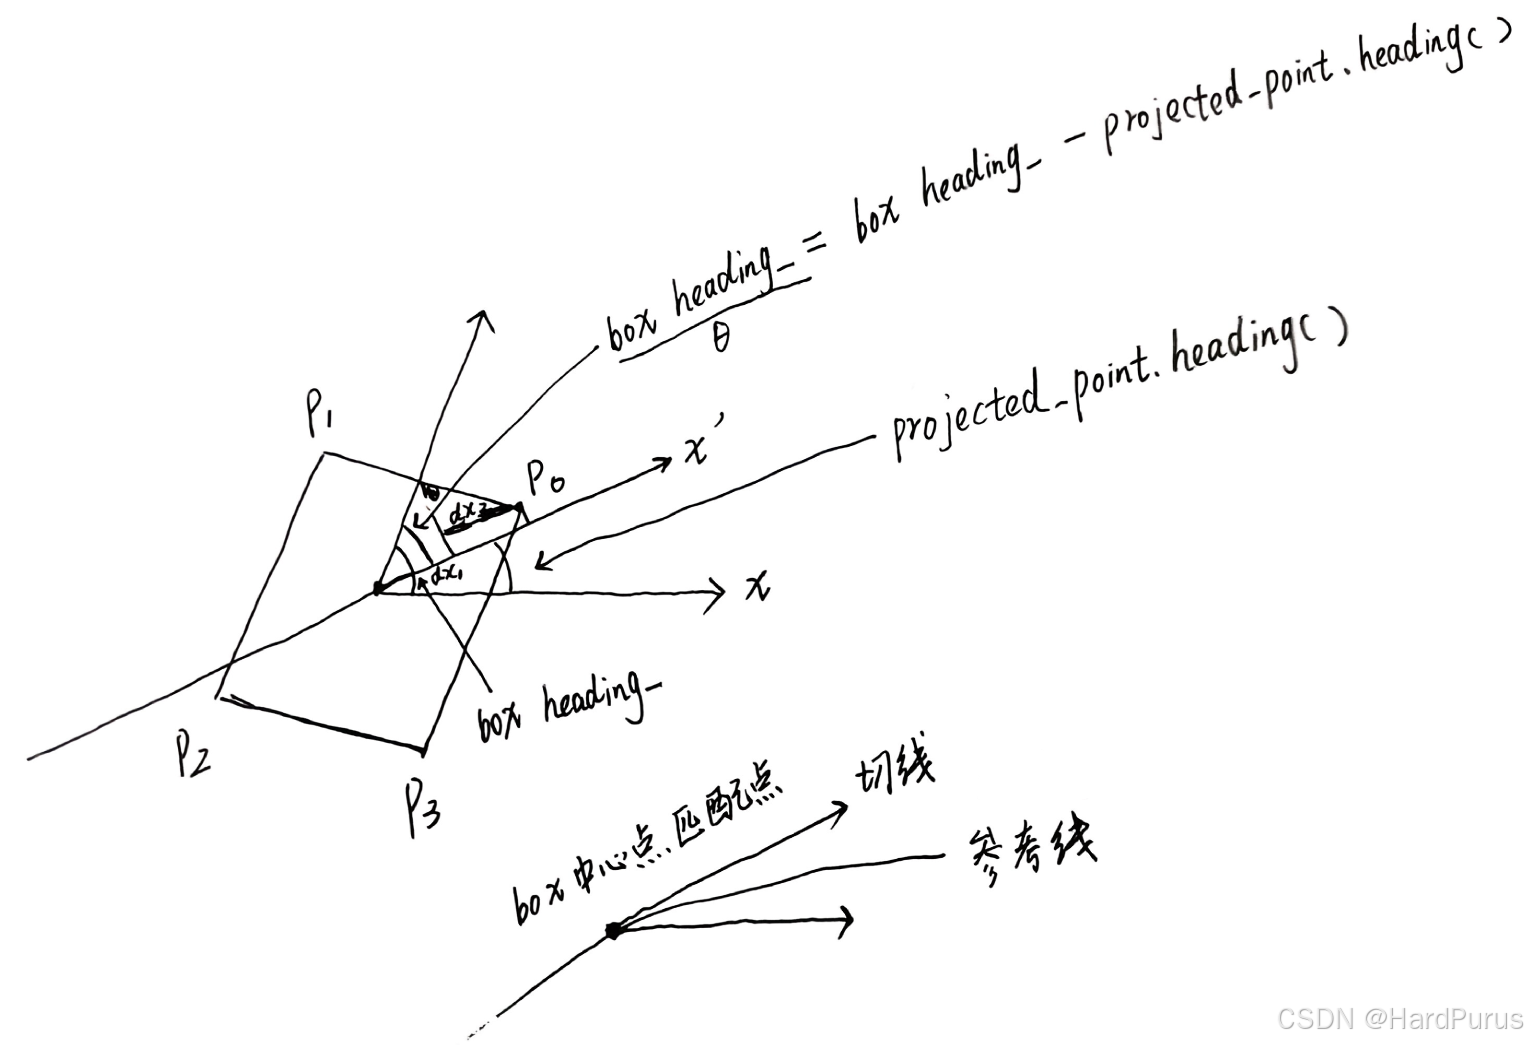 box heading_ = box heading_ - projected_point.heading()
θ
projected_point.heading()
P1
P0
x'
θ
dx2
dx1
x
box heading_
P2
P3
box中心点匹配点
切线
参考线
CSDN @HardPurus